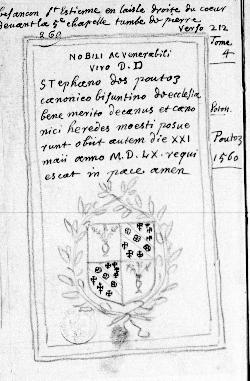 besancon St Estienne en laisle droite du coeur
devant la 5e chapelle tumbe de pierre
860
verso 212
Tome
4
NOBILI AC venerabili
viro D. D
Stephano des poutoz
canonico bisuntino de ecclesia
bene merito decanus et cano
nici heredes moesti posue
runt obiit autem die XXI
maii anno M. D. LX. requi
escat in pace amen
Poutoz
1560